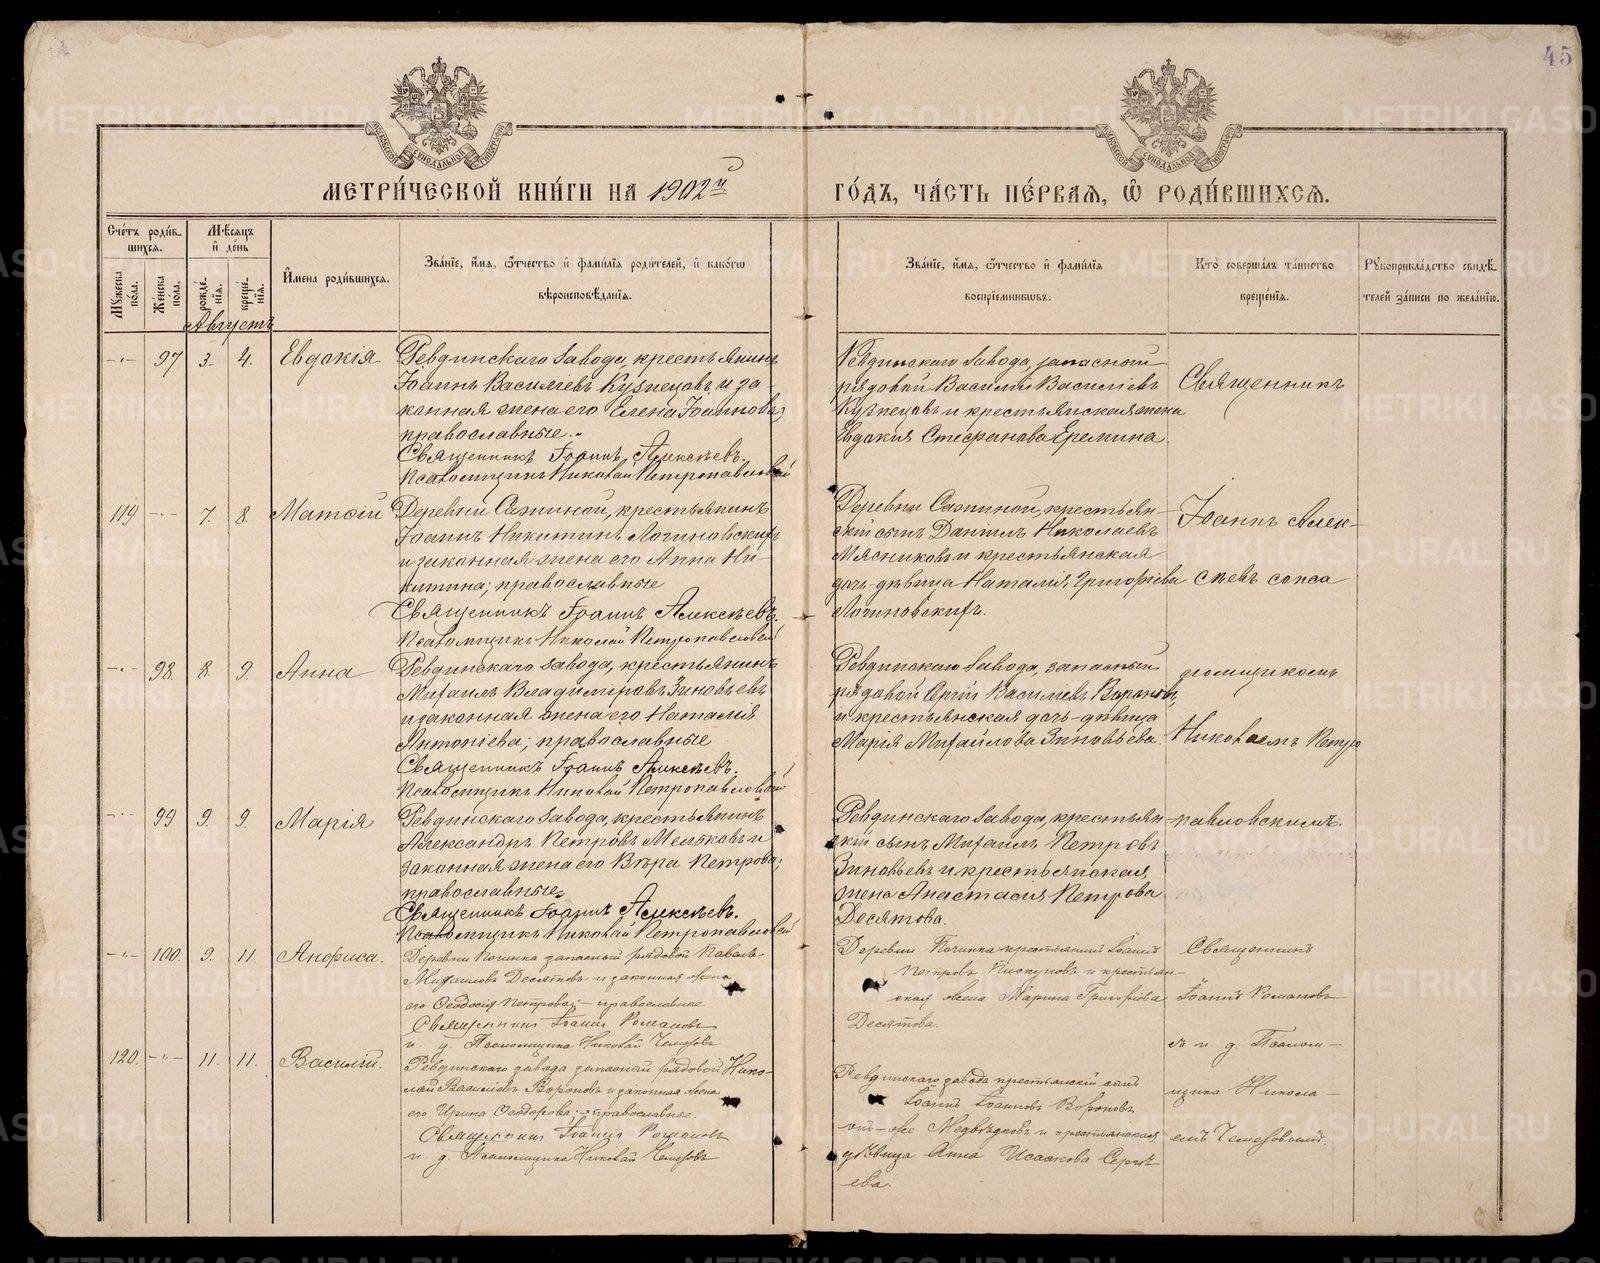 45
МЕТРИ́ЧЕСКОЙ КНИ́ГИ НА 1902й ГО́ДЪ, ЧА́СТЬ ПЕ́РВАЯ, Ѡ РОДИ́ВШИХСЯ.
Сче́тъ роди́в-
шихся.
Мѣ́сяцъ
и де́нь
Му́жеска по́ла.
Же́нска по́ла.
рожде́-
нія.
креще́-
нія.
И́мена роди́вшихся.
Зва́ніе, и́мя, ѻ́тчество и фами́лія роди́телей, и како́гѡ
вѣроисповѣ́данія.
Зва́ніе, и́мя, ѻ́тчество и фами́лія
воспріе́мникѡвъ.
Кто̀ соверша́лъ та́инство
креще́нія.
Рукоприкла́дство свидѣ́-
телей за́писи по жела́нію.
Августъ
97 3. 4. Евдокія
Ревдинскаго завода, крестьянинъ
Іоаннъ Василіевъ Кузнецовъ и за-
конная жена его Елена Іоаннова;
православные.
Священникъ Іоаннъ Алексѣевъ.
Псаломщикъ Николай Петропавловскій
Ревдинскаго завода, запасной
рядовой Василій Василіевъ
Кузнецовъ и крестьянская жена
Евдокія Стефанова Еремина.
Священникъ
119 7. 8. Матѳій
Деревни Сажиной, крестьянинъ
Іоаннъ Никитинъ Логиновскихъ
и законная жена его Анна Ни-
китина; православные
Священникъ Іоаннъ Алексѣевъ.
Псаломщикъ Николай Петропавловскій
Деревни Сажиной, крестьян-
скій сынъ Даніилъ Николаевъ
Мясниковъ и крестьянская
дочь-дѣвица Наталія Григоріева
Логиновскихъ.
Іоаннъ Алек-
сѣевъ съ пса
98. 8. 9. Анна
Ревдинскаго завода, крестьянинъ
Михаилъ Владиміровъ Зиновьевъ
и законная жена его Наталія
Антоніева; православные
Священникъ Іоаннъ Алексѣевъ.
Псаломщикъ Николай Петропавловскій
Ревдинскаго завода, запасный
рядовой Сергій Василіевъ Воронов,
и крестьянская дочь-дѣвица
Марія Михайлова Зиновьева.
ломщикомъ
Николаемъ Петро
99 9. 9. Марія
Ревдинскаго завода, крестьянинъ
Александръ Петровъ Мельковъ и
законная жена его Вѣра Петрова;
православные.
Священникъ Іоаннъ Алексѣевъ.
Псаломщикъ Николай Петропавловскій
Ревдинскаго завода, крестьян-
скій сынъ Михаилъ Петровъ
Зиновьевъ и крестьянская
жена Анастасія Петрова
Десятова.
павловскимъ.
100. 9. 11. Анфиса.
Деревни Починка запасной рядовой Павелъ
Михаиловъ Десятовъ и законная жена
его Ѳеодосія Петрова; – православные
Священникъ Іоаннъ Романовъ
и. д. Псаломщика Николай Чемезовъ
Деревни Починка крестьянинъ Іоаннъ
Петровъ Пискуновъ и крестьян-
ская жена Марина Григорьева
Десятова.
Священникъ
Іоаннъ Романовъ
съ и. д. Псалом-
120. 11. 11. Василій.
Ревдинскаго завода запасный рядовой Нико-
лай Василіевъ Вороновъ и законная жена
его Ирина Ѳеодорова; – православные.
Священникъ Іоаннъ Романовъ
и. д. Псаломщика Николай Чемезовъ
Ревдинскаго завода крестьянскій сынъ
Іоаннъ Іоанновъ Вороновъ
онъ-же Медвѣдковъ и крестьянская
дѣвица Анна Исаакова Сергѣ-
ева.
щика Никола-
емъ Чемезовымъ.